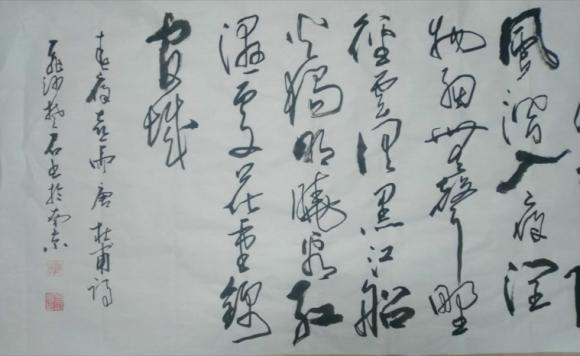 風潛入夜潤
物細無聲野
徑雲俱黑江船
火獨明曉看紅
濕處花重錦
官城
春夜喜雨唐杜甫詩
沙楚石书於南京